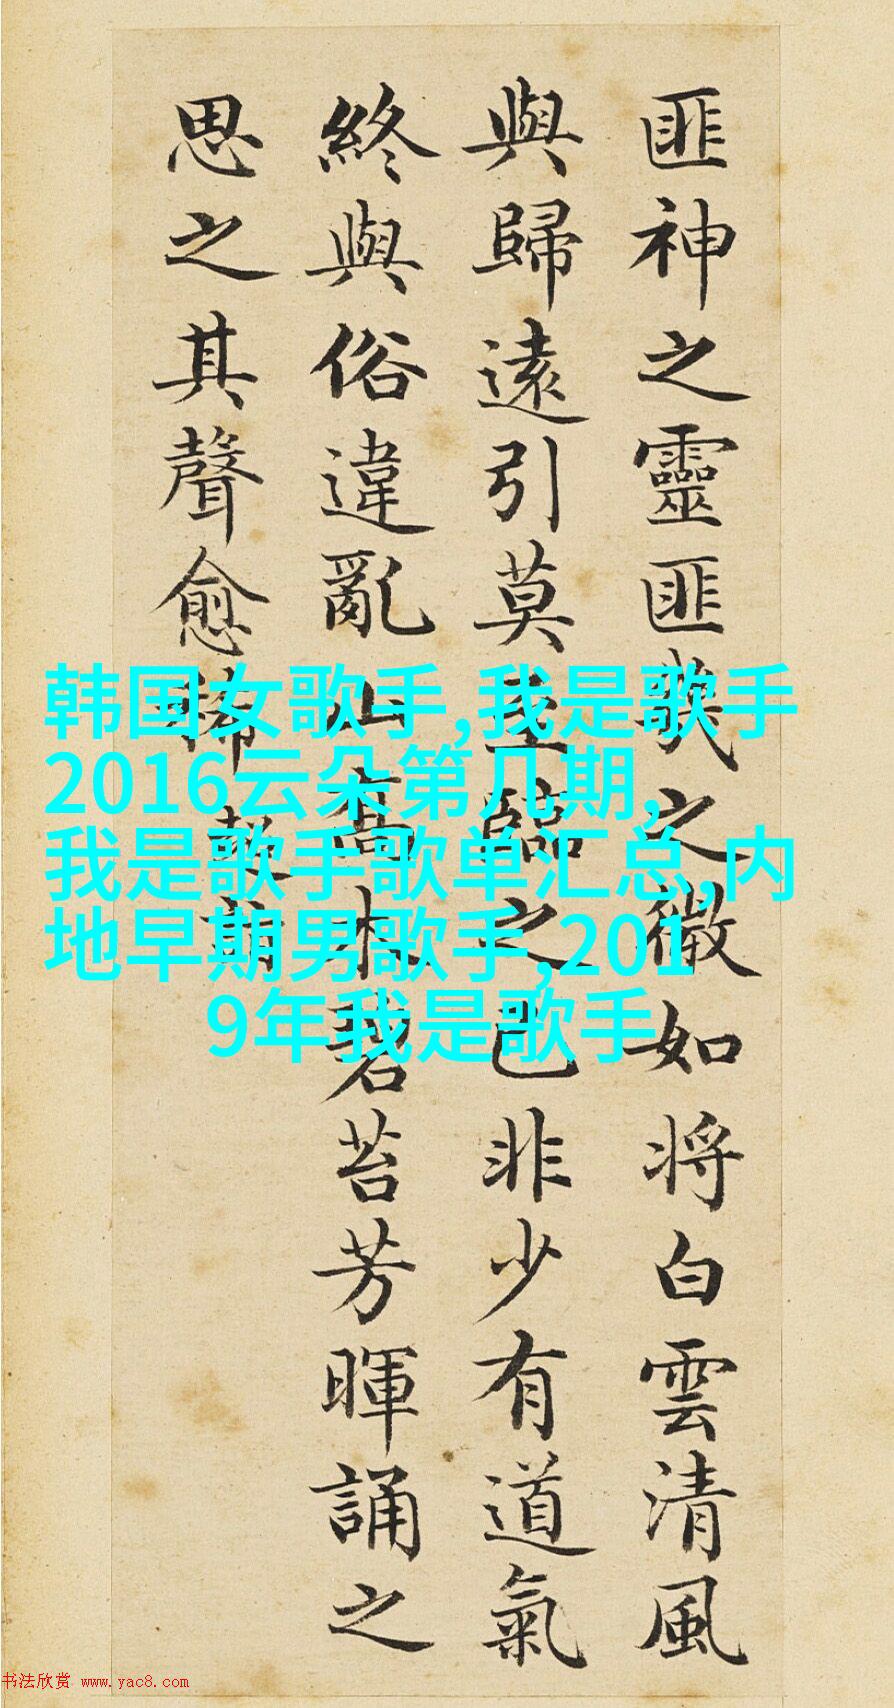 匪神之靈匪幾之微如將白雲清風
與歸遠引莫至臨之已非少有道氣
終與俗違亂山喬木碧苔芳暉誦之
思之其聲愈稀
韩国女歌手,我是歌手
2016云朵第几期,
我是歌手歌单汇总,内
地早期男歌手,201
9年我是歌手
书法欣赏 www.yac8.com